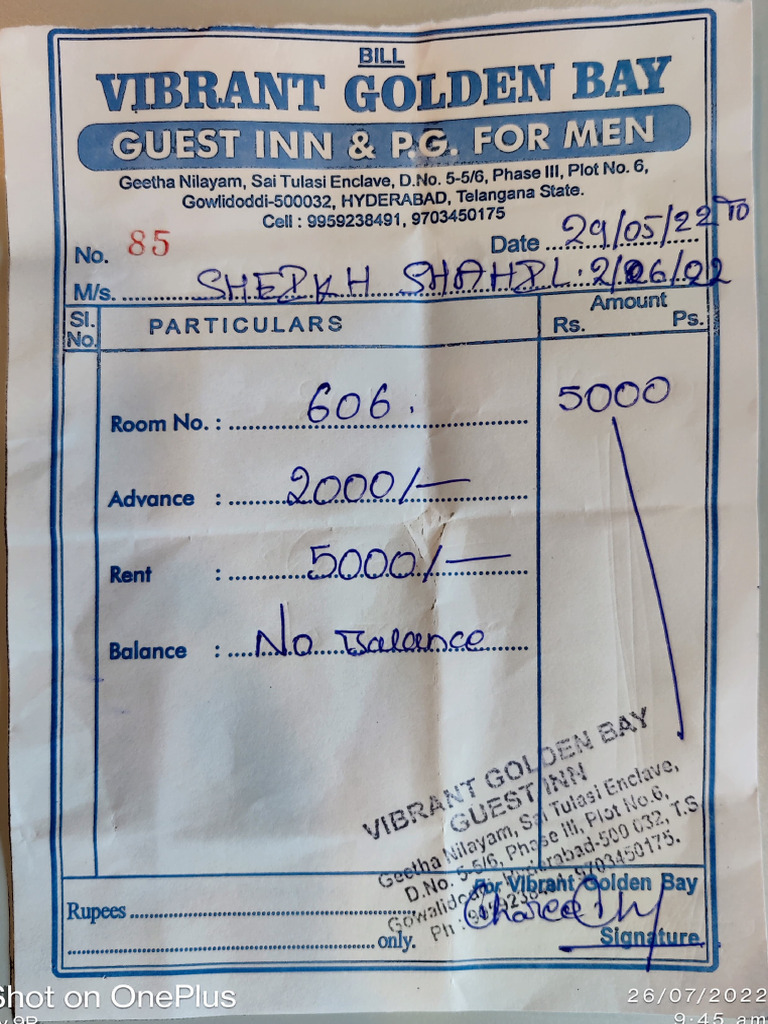 BILL
VIBRANT GOLDEN BAY
GUEST INN & P.G. FOR MEN
Geetha Nilayam, Sai Tulasi Enclave, D.No. 5-5/6, Phase III, Plot No. 6,
Gowlidoddi-500032, HYDERABAD, Telangana State.
Cell : 9959238491, 9703450175
No. 85 Date 29/05/22 TO
M/s. SHEIKH SHAHIL. 2/06/22
Sl. No. PARTICULARS Amount
Rs. Ps.
Room No. : 606. 5000
Advance : 2000/—
Rent : 5000/—
Balance : No Balance
VIBRANT GOLDEN BAY
GUEST INN
Geetha Nilayam, Sai Tulasi Enclave,
D.No. 5-5/6, Phase III, Plot No.6,
Gowalidoddi, Hyderabad-500 032, T.S
Ph : 9703450175.
For Vibrant Golden Bay
Rupees
only.
Signature
Shot on OnePlus
26/07/2022
9:45 am